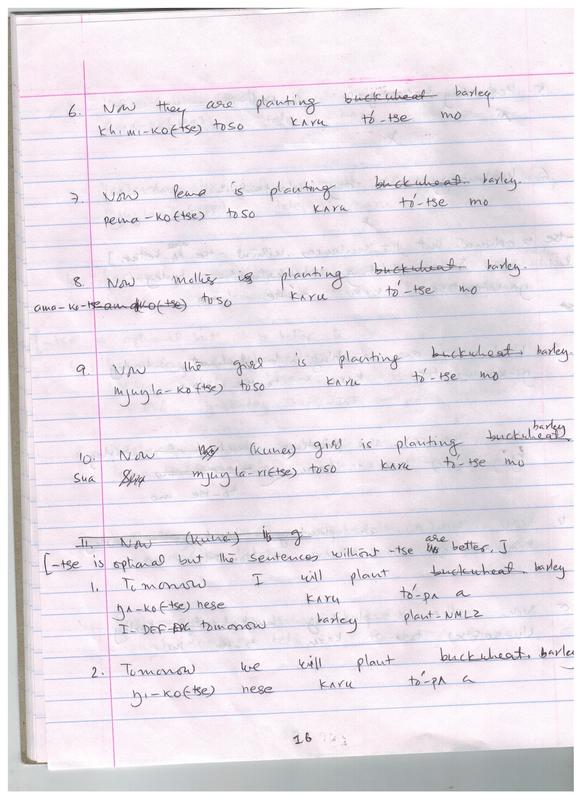 6. Now they are planting buckwheat barley
khimi-ko(-tse) toso kʌru tó-tse mo
7. Now Pema is planting buckwheat barley.
pema-ko(-tse) toso kʌru tó-tse mo
8. Now mother is planting buckwheat barley.
ama-ko-tse ama-ko(-tse) toso kʌru tó-tse mo
9. Now the girl is planting buckwheat. barley.
mjuŋla-ko(-tse) toso kʌru tó-tse mo
10. Now (kunei) girl is planting buckwheat barley
sua mjuŋla-ri(-tse) toso kʌru tó-tse mo
II. Now (kunei) is g
[-tse is optional but the sentences without -tse are better.]
1. Tomorrow I will plant buckwheat. barley
ŋʌ-ko(-tse) nese kʌru tó-pʌ a
I-DEF-ERG tomorrow barley plant-NMLZ
2. Tomorrow we will plant buckwheat. barley
ŋi-ko(-tse) nese kʌru tó-pʌ a
16